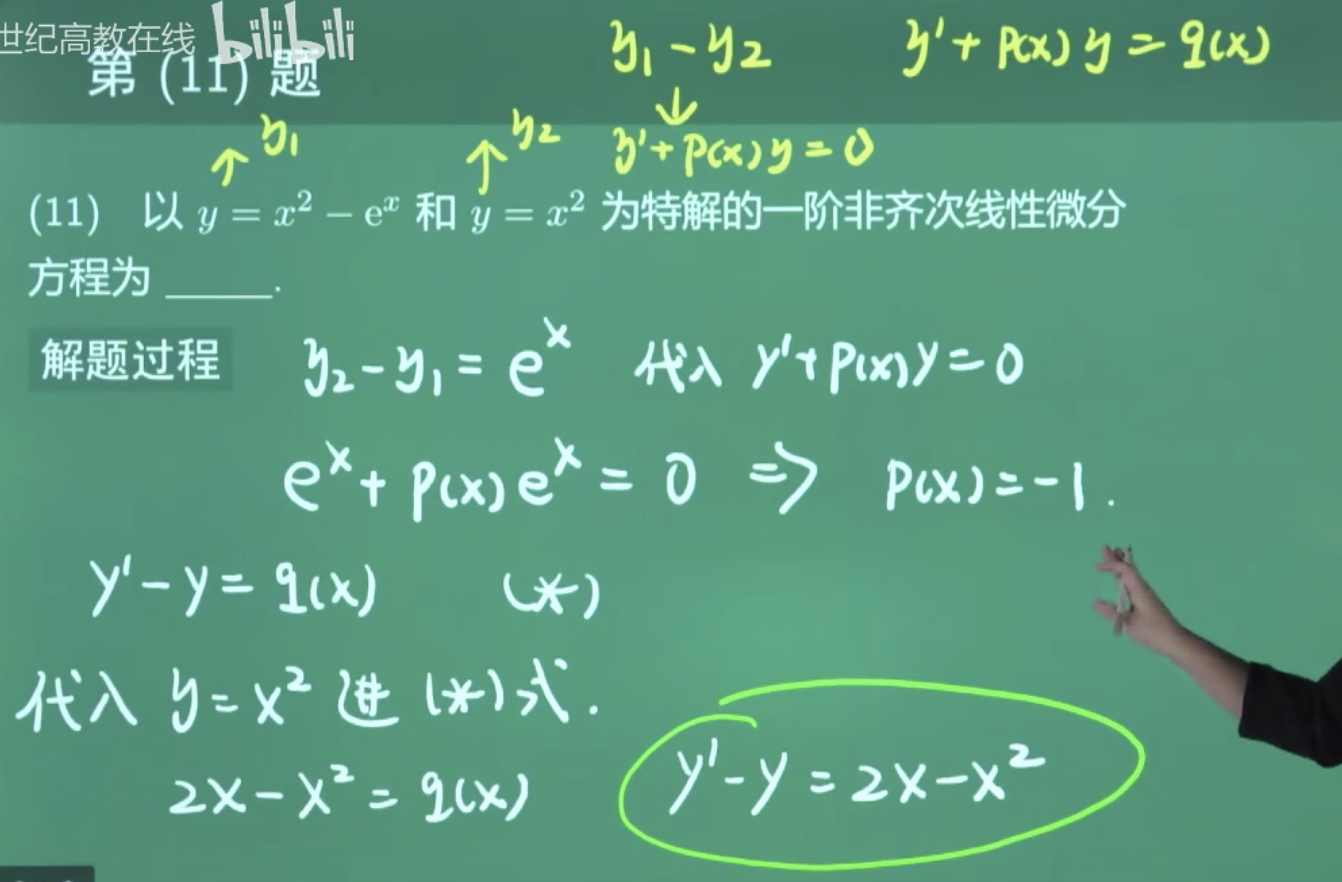 世纪高教在线 bilibili
第 (11) 题
y₁ − y₂
y' + p(x) y = q(x)
↓
y' + p(x) y = 0
↑ y₁
↑ y₂
(11) 以 y = x² − eˣ 和 y = x² 为特解的一阶非齐次线性微分
方程为 _____.
解题过程
y₂ − y₁ = eˣ 代入 y' + p(x) y = 0
eˣ + p(x) eˣ = 0 ⇒ p(x) = −1.
y' − y = q(x) (*)
代入 y = x² 进 (*) 式.
2x − x² = q(x)
y' − y = 2x − x²